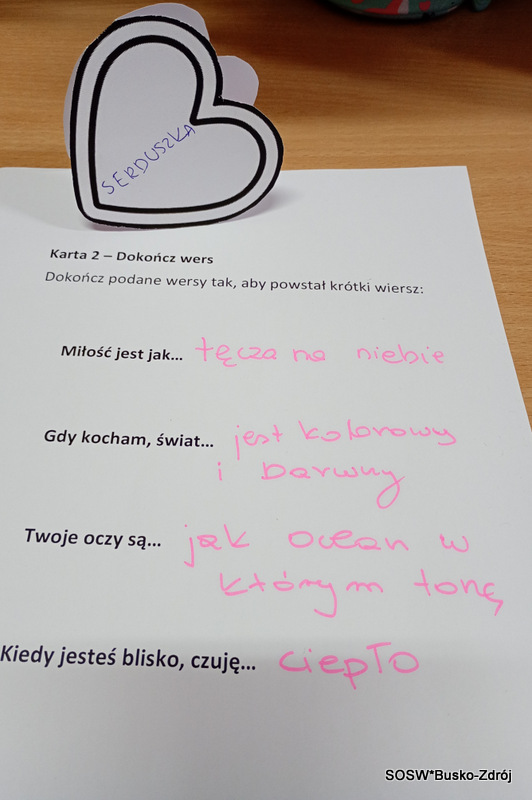 SERDUSZKA
Karta 2 – Dokończ wers
Dokończ podane wersy tak, aby powstał krótki wiersz:
Miłość jest jak... tęcza na niebie
Gdy kocham, świat... jest kolorowy
i barwny
Twoje oczy są... jak ocean w
którym tonę
Kiedy jesteś blisko, czuję... ciepło
SOSW*Busko-Zdrój